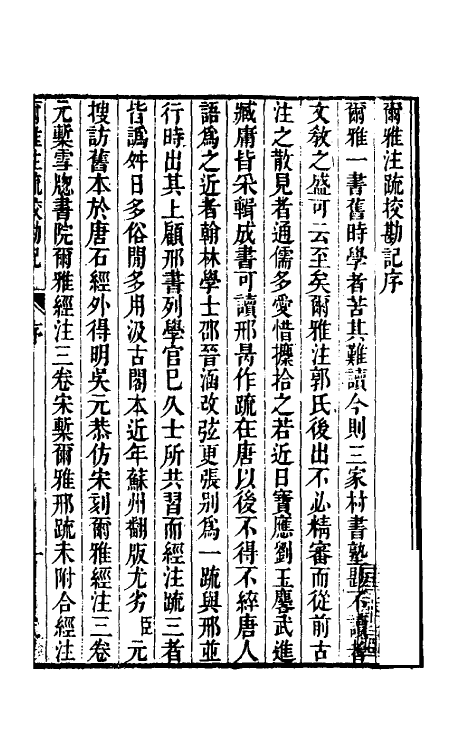 爾雅注疏挍勘記序
爾雅一書舊時學者苦其難讀今則三家村書塾不讀者
文敎之盛可云至矣爾雅注郭氏後出不必精審而從前古
注之散見者通儒多愛惜攗拾之若近日寶應劉玉麐武進
臧庸皆采輯成書可讀邢昺作疏在唐以後不得不綷唐人
語爲之近者翰林學士邵晉涵改弦更張別爲一疏與邢並
行時出其上顧邢書列學官已久士所共習而經注疏三者
皆譌舛日多俗閒多用汲古閣本近年蘇州翻版尤劣臣元
搜訪舊本於唐石經外得明吳元恭仿宋刻爾雅經注三卷
元槧雪牕書院爾雅經注三卷宋槧爾雅邢疏未附合經注
爾雅注疏挍勘記
序